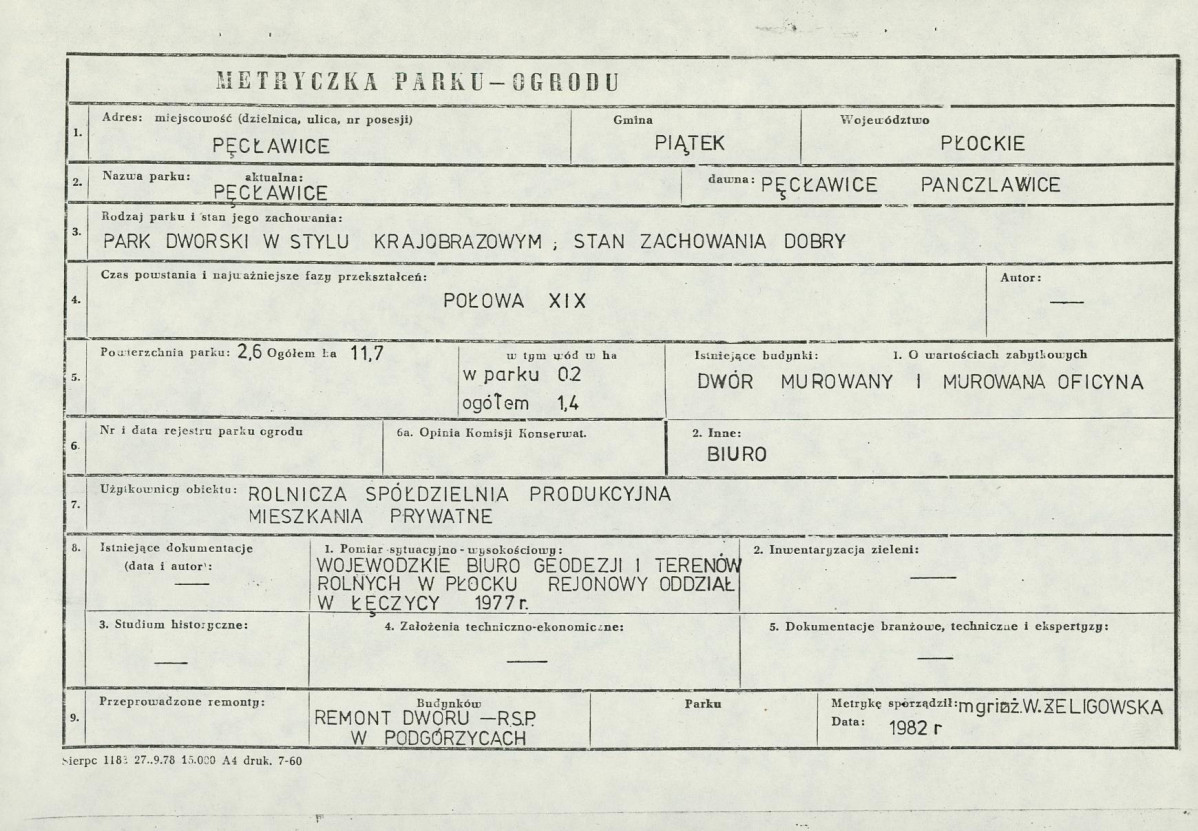 METRYCZKA PARKU-OGRODU
1. Adres: miejscowość (dzielnica, ulica, nr posesji) Gmina Województwo
PĘCŁAWICE PIĄTEK PŁOCKIE
2. Nazwa parku: aktualna: dawna: PĘCŁAWICE PANCZLAWICE
PĘCŁAWICE
3. Rodzaj parku i stan jego zachowania:
PARK DWORSKI W STYLU KRAJOBRAZOWYM ; STAN ZACHOWANIA DOBRY
4. Czas powstania i najważniejsze fazy przekształceń: Autor:
POŁOWA XIX —
5. Powierzchnia parku: 2,6 Ogółem ha 11,7 w tym wód w ha Istniejące budynki: 1. O wartościach zabytkowych
w parku 02 DWÓR MUROWANY I MUROWANA OFICYNA
ogółem 1,4
6. Nr i data rejestru parku ogrodu 6a. Opinia Komisji Konserwat. 2. Inne:
BIURO
7. Użytkownicy obiektu: ROLNICZA SPÓŁDZIELNIA PRODUKCYJNA
MIESZKANIA PRYWATNE
8. Istniejące dokumentacje 1. Pomiar sytuacyjno-wysokościowy: 2. Inwentaryzacja zieleni:
(data i autor): WOJEWODZKIE BIURO GEODEZJI I TERENÓW
— ROLNYCH W PŁOCKU REJONOWY ODDZIAŁ —
W ŁĘCZYCY 1977 r.
3. Studium historyczne: 4. Założenia techniczno-ekonomiczne: 5. Dokumentacje branżowe, techniczne i ekspertyzy:
— — —
9. Przeprowadzone remonty: Budynków Parku Metrykę sporządził: mgr inż. W. ŻELIGOWSKA
REMONT DWORU — R.S.P. Data: 1982 r
W PODGÓRZYCACH
Sierpc 27..9.78 15.000 A4 druk. 7-60